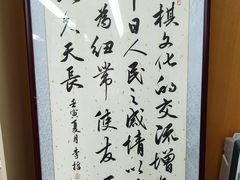 棋文化的交流增
中日人民之感情以
為紐帶使友
天長
壬寅夏月李